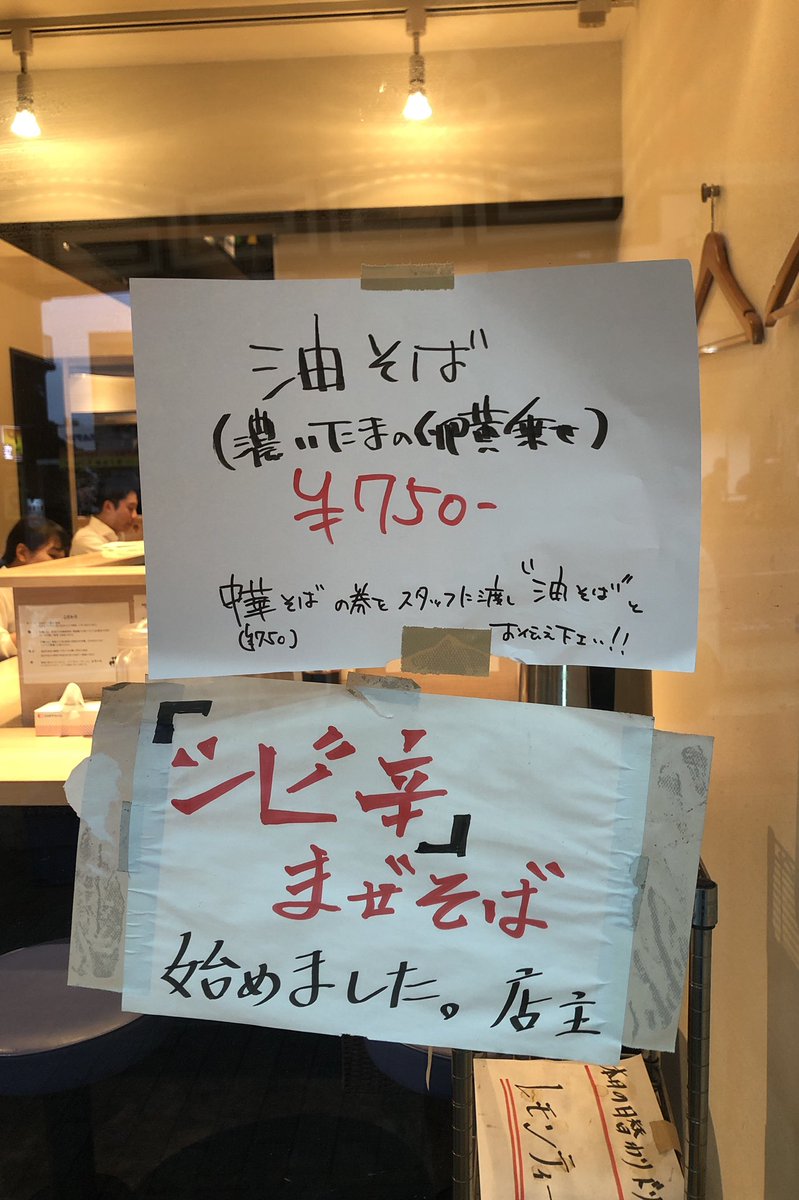 油そば
(濃いたまの卵黄乗せ)
¥750-
中華そばの券をスタッフに渡し"油そば"と
(¥750)
お伝え下さい!!
「シビ辛」
まぜそば
始めました。店主
本日の日替わりド
レモンティー